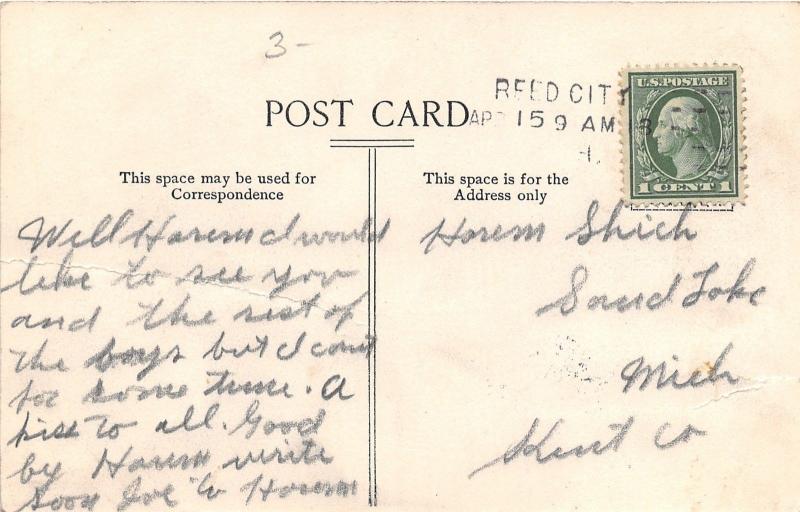 3-
REED CITY
APR 15 9 AM
U.S. POSTAGE
1 CENT 1
POST CARD
This space may be used for
Correspondence
This space is for the
Address only
Well Harem I would
like to see you
and the rest of
the boys but I cant
for some time. A
kiss to all. Good
by Harem write
soon Joe to Harem
Harem Shich
Sand Lake
Mich
Kent Co